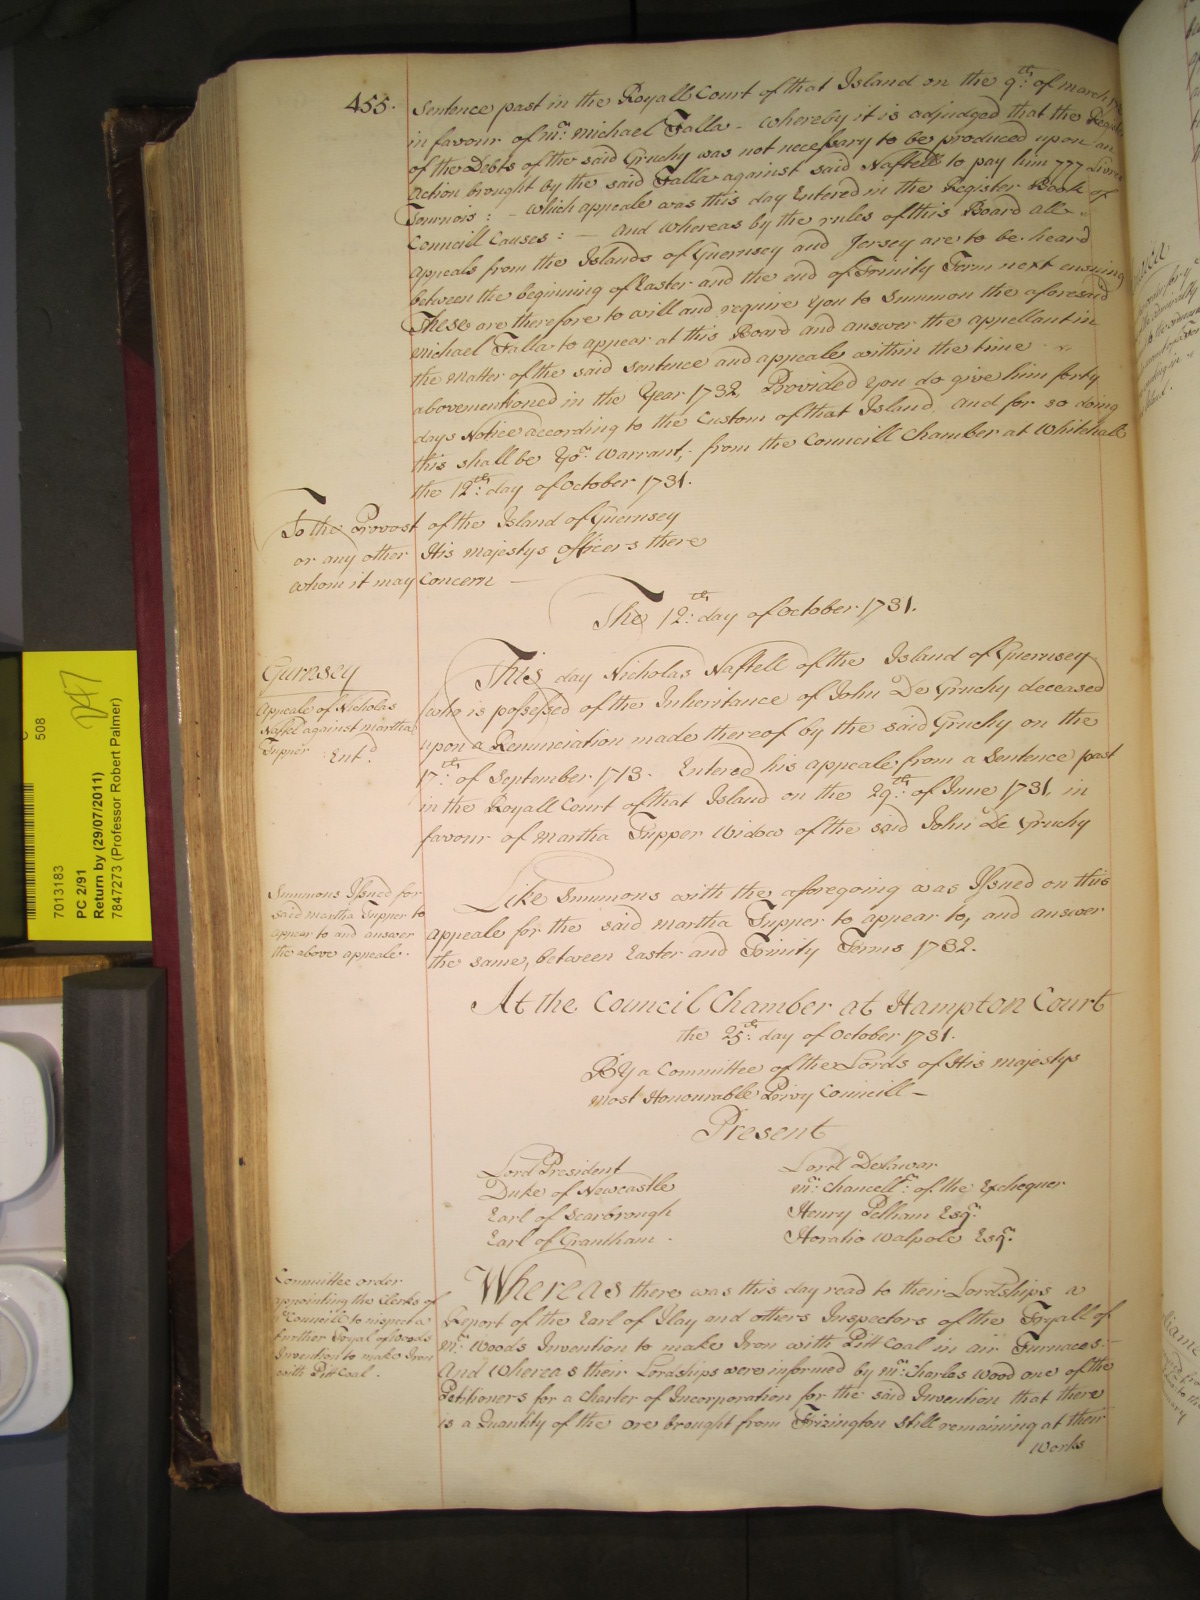 455.
Sentence past in the Royall Court of that Island on the 9th: of march
in favour of Mr: Michael Falla - whereby it is adjudged that the
of the Debts of the said Gruchy was not necessary to be produced upon an
Action brought by the said Falla against said Naftell to pay him 777 Livres
Tournois: - which appeale was this day Entered in the Register Book of
Councill Causes: - And whereas by the rules of this Board all
Appeals from the Islands of Guernsey and Jersey are to be heard
between the beginning of Easter and the end of Trinity Term next ensuing
These are therefore to will and require you to Summon the aforesaid
Michael Falla to appear at this Board and answer the appellant in
the Matter of the said Sentence and appeale within the time
abovementioned in the Year 1732, Provided you do give him forty
days Notice according to the Custom of that Island. And for so doing
this shall be Yor. Warrant, from the Councill Chamber at Whitehall
the 12th: day of October 1731.
To the Provost of the Island of Guernsey
or any other His Majestys Officers there
whom it may Concern -
The 12th: day of October 1731.
Gurnsey
Appeale of Nicholas
Naftel against Martha
Tupper Entd.
This day Nicholas Naftell of the Island of Guernsey
who is possessed of the Inheritance of John De Gruchy deceased
upon a Renunciation made thereof by the said Gruchy on the
17th: of September 1713. Entered his appeale from a Sentence past
in the Royall Court of that Island on the 29th: of June 1731, in
favour of Martha Tupper Widow of the said John De Gruchy
Summons Issued for
said Martha Tupper to
appear to and answer
the above appeale.
Like Summons with the aforegoing was Issued on this
appeale for the said Martha Tupper to appear to, and answer
the same, between Easter and Trinity Terms 1732.
At the Council Chamber at Hampton Court
the 25th: day of October 1731.
By a Committee of the Lords of His Majestys
most Honourable Privy Councill -
Present
Lord President
Duke of Newcastle
Earl of Scarbrough
Earl of Grantham.
Lord Delawar
Mr: Chancellr: of the Exchequer
Henry Pelham Esqr.
Horatio Walpole Esqr.
Committee order
appointing the Clerks of
ye Councill to inspect a
further Tryal of Woods
Invention to make Iron
with Pitt Coal.
Whereas there was this day read to their Lordships a
Report of the Earl of Ilay and others Inspectors of the Tryall of
Mr: Woods Invention to make Iron with Pitt Coal in air Furnaces:
And Whereas their Lordships were informed by Mr: Charles Wood one of the
Petitioners for a Charter of Incorporation for the said Invention that there
is a Quantity of the ore brought from Frizington still remaining at their
Works
508
247
7013183
PC 2/91
Return by (29/07/2011)
7847273 (Professor Robert Palmer)